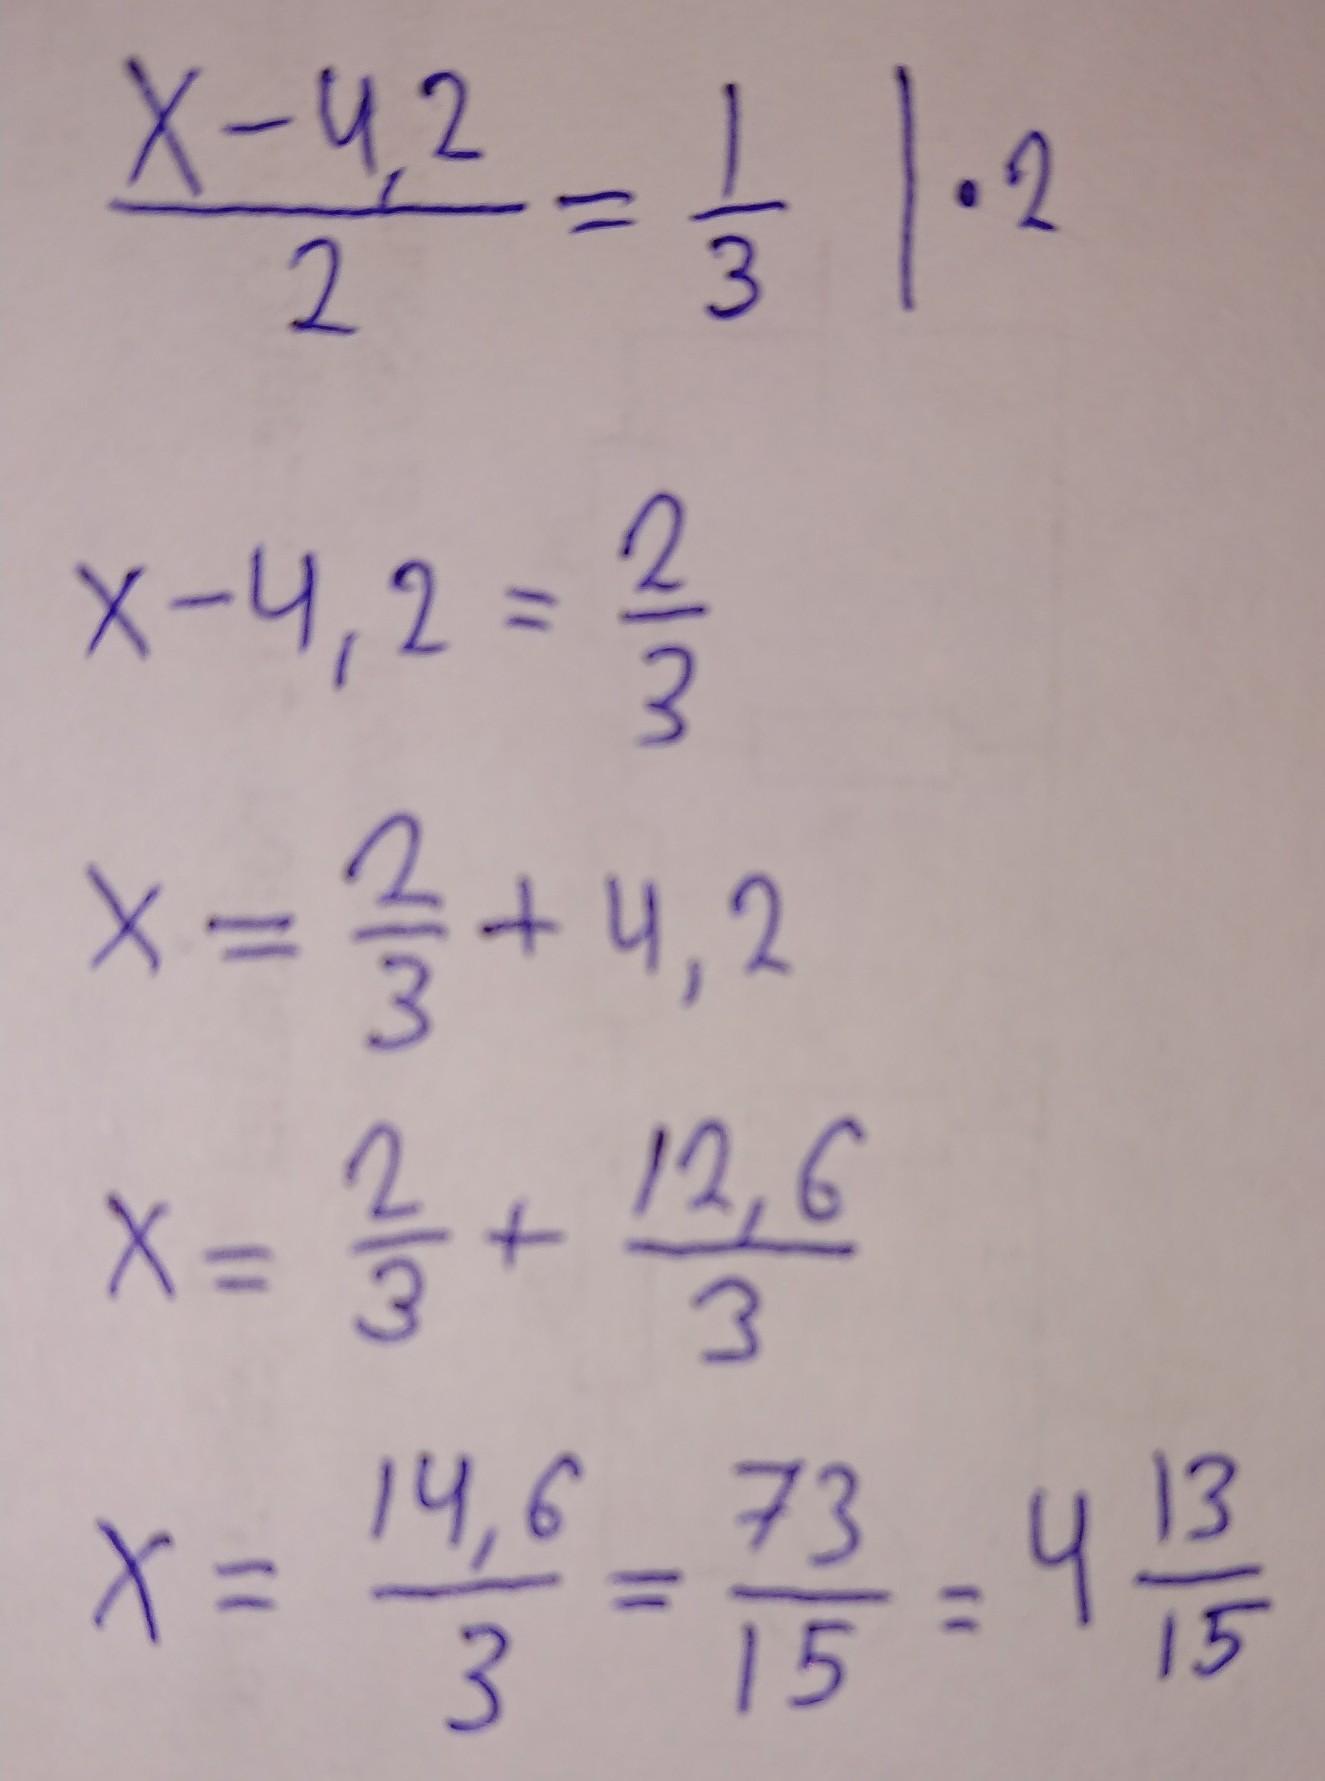 (x-4,2)/2 = 1/3 | · 2
x-4,2 = 2/3
x = 2/3 + 4,2
x = 2/3 + 12,6/3
x = 14,6/3 = 73/15 = 4 13/15